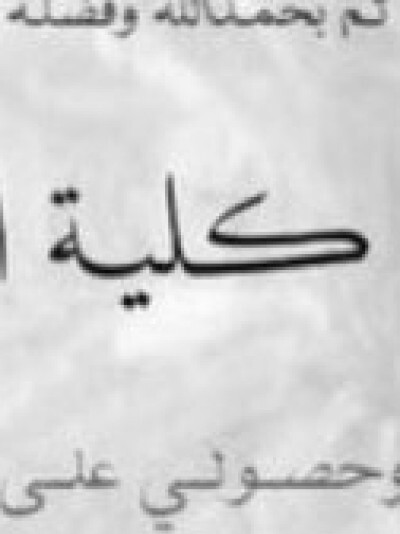 تم بحمدالله وفضله
كلية
وحصولي على